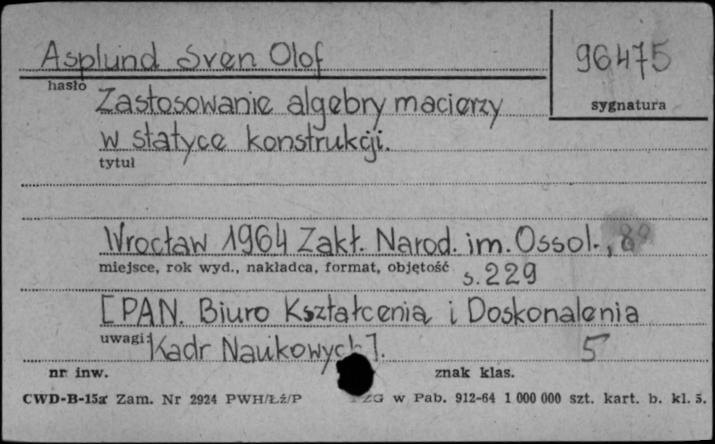 Asplund Sven Olof
96475
hasło
sygnatura
Zastosowanie algebry macierzy
w statyce konstrukcji.
tytuł
Wrocław 1964 Zakł. Narod. im. Ossol., 8°
miejsce, rok wyd., nakładca, format, objętość s. 229
[PAN. Biuro Kształcenia i Doskonalenia
uwagi: Kadr Naukowych]. 5
nr inw. znak klas.
CWD-B-15a Zam. Nr 2924 PWH/Łż/P ZG w Pab. 912-64 1 000 000 szt. kart. b. kl. 5.